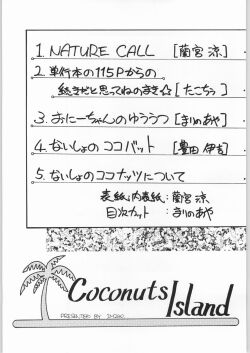 1. NATURE CALL [蘭宮 涼]
2. 単行本の115Pからの
続きだと思ってねのまき☆[たこちゅう]
3. おにーちゃんのゆううつ[まりのあや]
4. ないしょのココバット [豊田
5. ないしょのココナッツについて
表紙・内表紙:蘭宮 涼
目次カット : まりのあや
Coconuts Island
PRESENTED BY